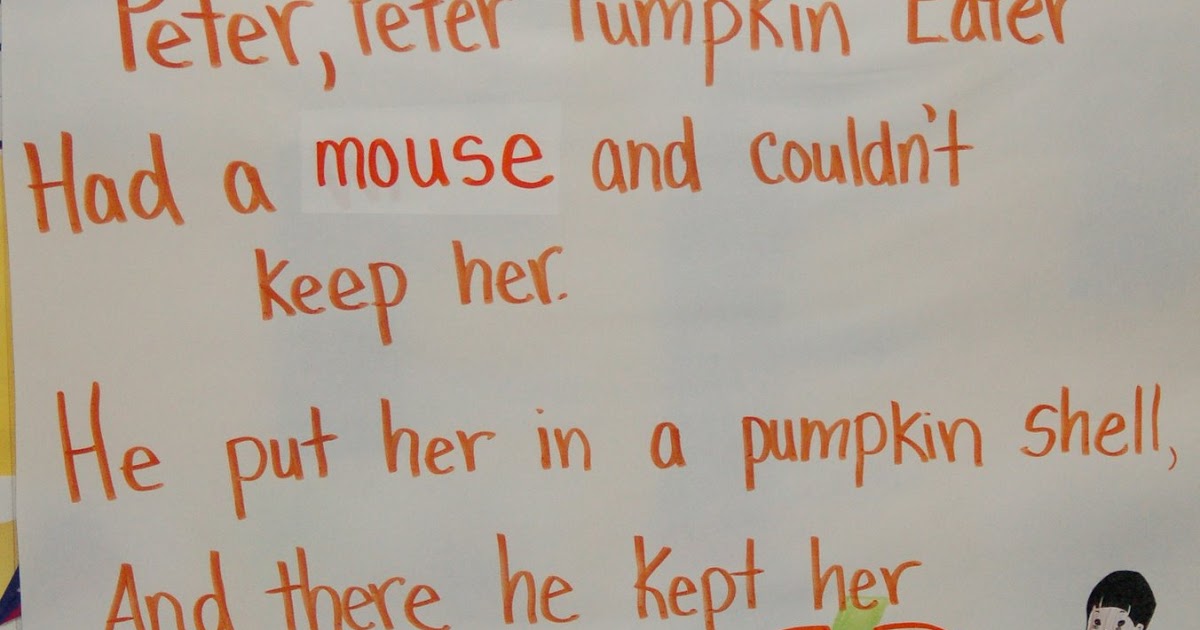 Peter, Peter Pumpkin Eater
Had a mouse and couldn't
keep her.
He put her in a pumpkin shell,
And there he kept her